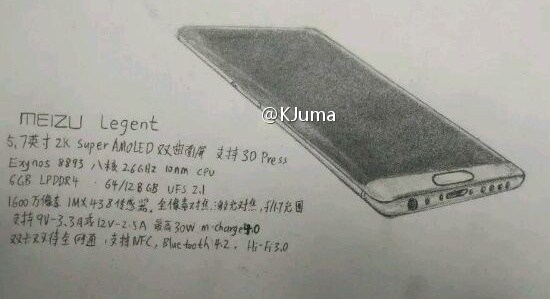 @KJuma
MEIZU Legent
5.7英寸 2K Super AMOLED 双曲面屏 支持3D Press
Exynos 8893 八核 2.6GHz 10nm CPU
6GB LPDDR4 · 64/128GB UFS 2.1
1600万像素 IMX438传感器, 全像素对焦, 激光对焦, f/1.7光圈
支持9V-3.3A或12V-2.5A 最高30W m-charge4.0
双卡双待全网通, 支持NFC, Bluetooth 4.2, Hi-Fi3.0